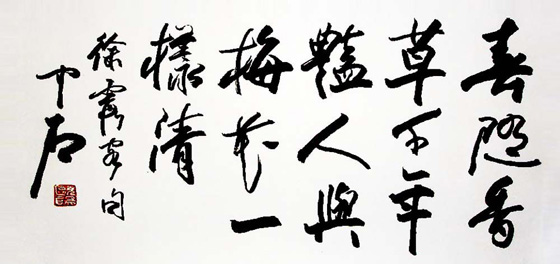 春隨香
草千年
豔人與
梅花一
樣清
徐霞客句
中石